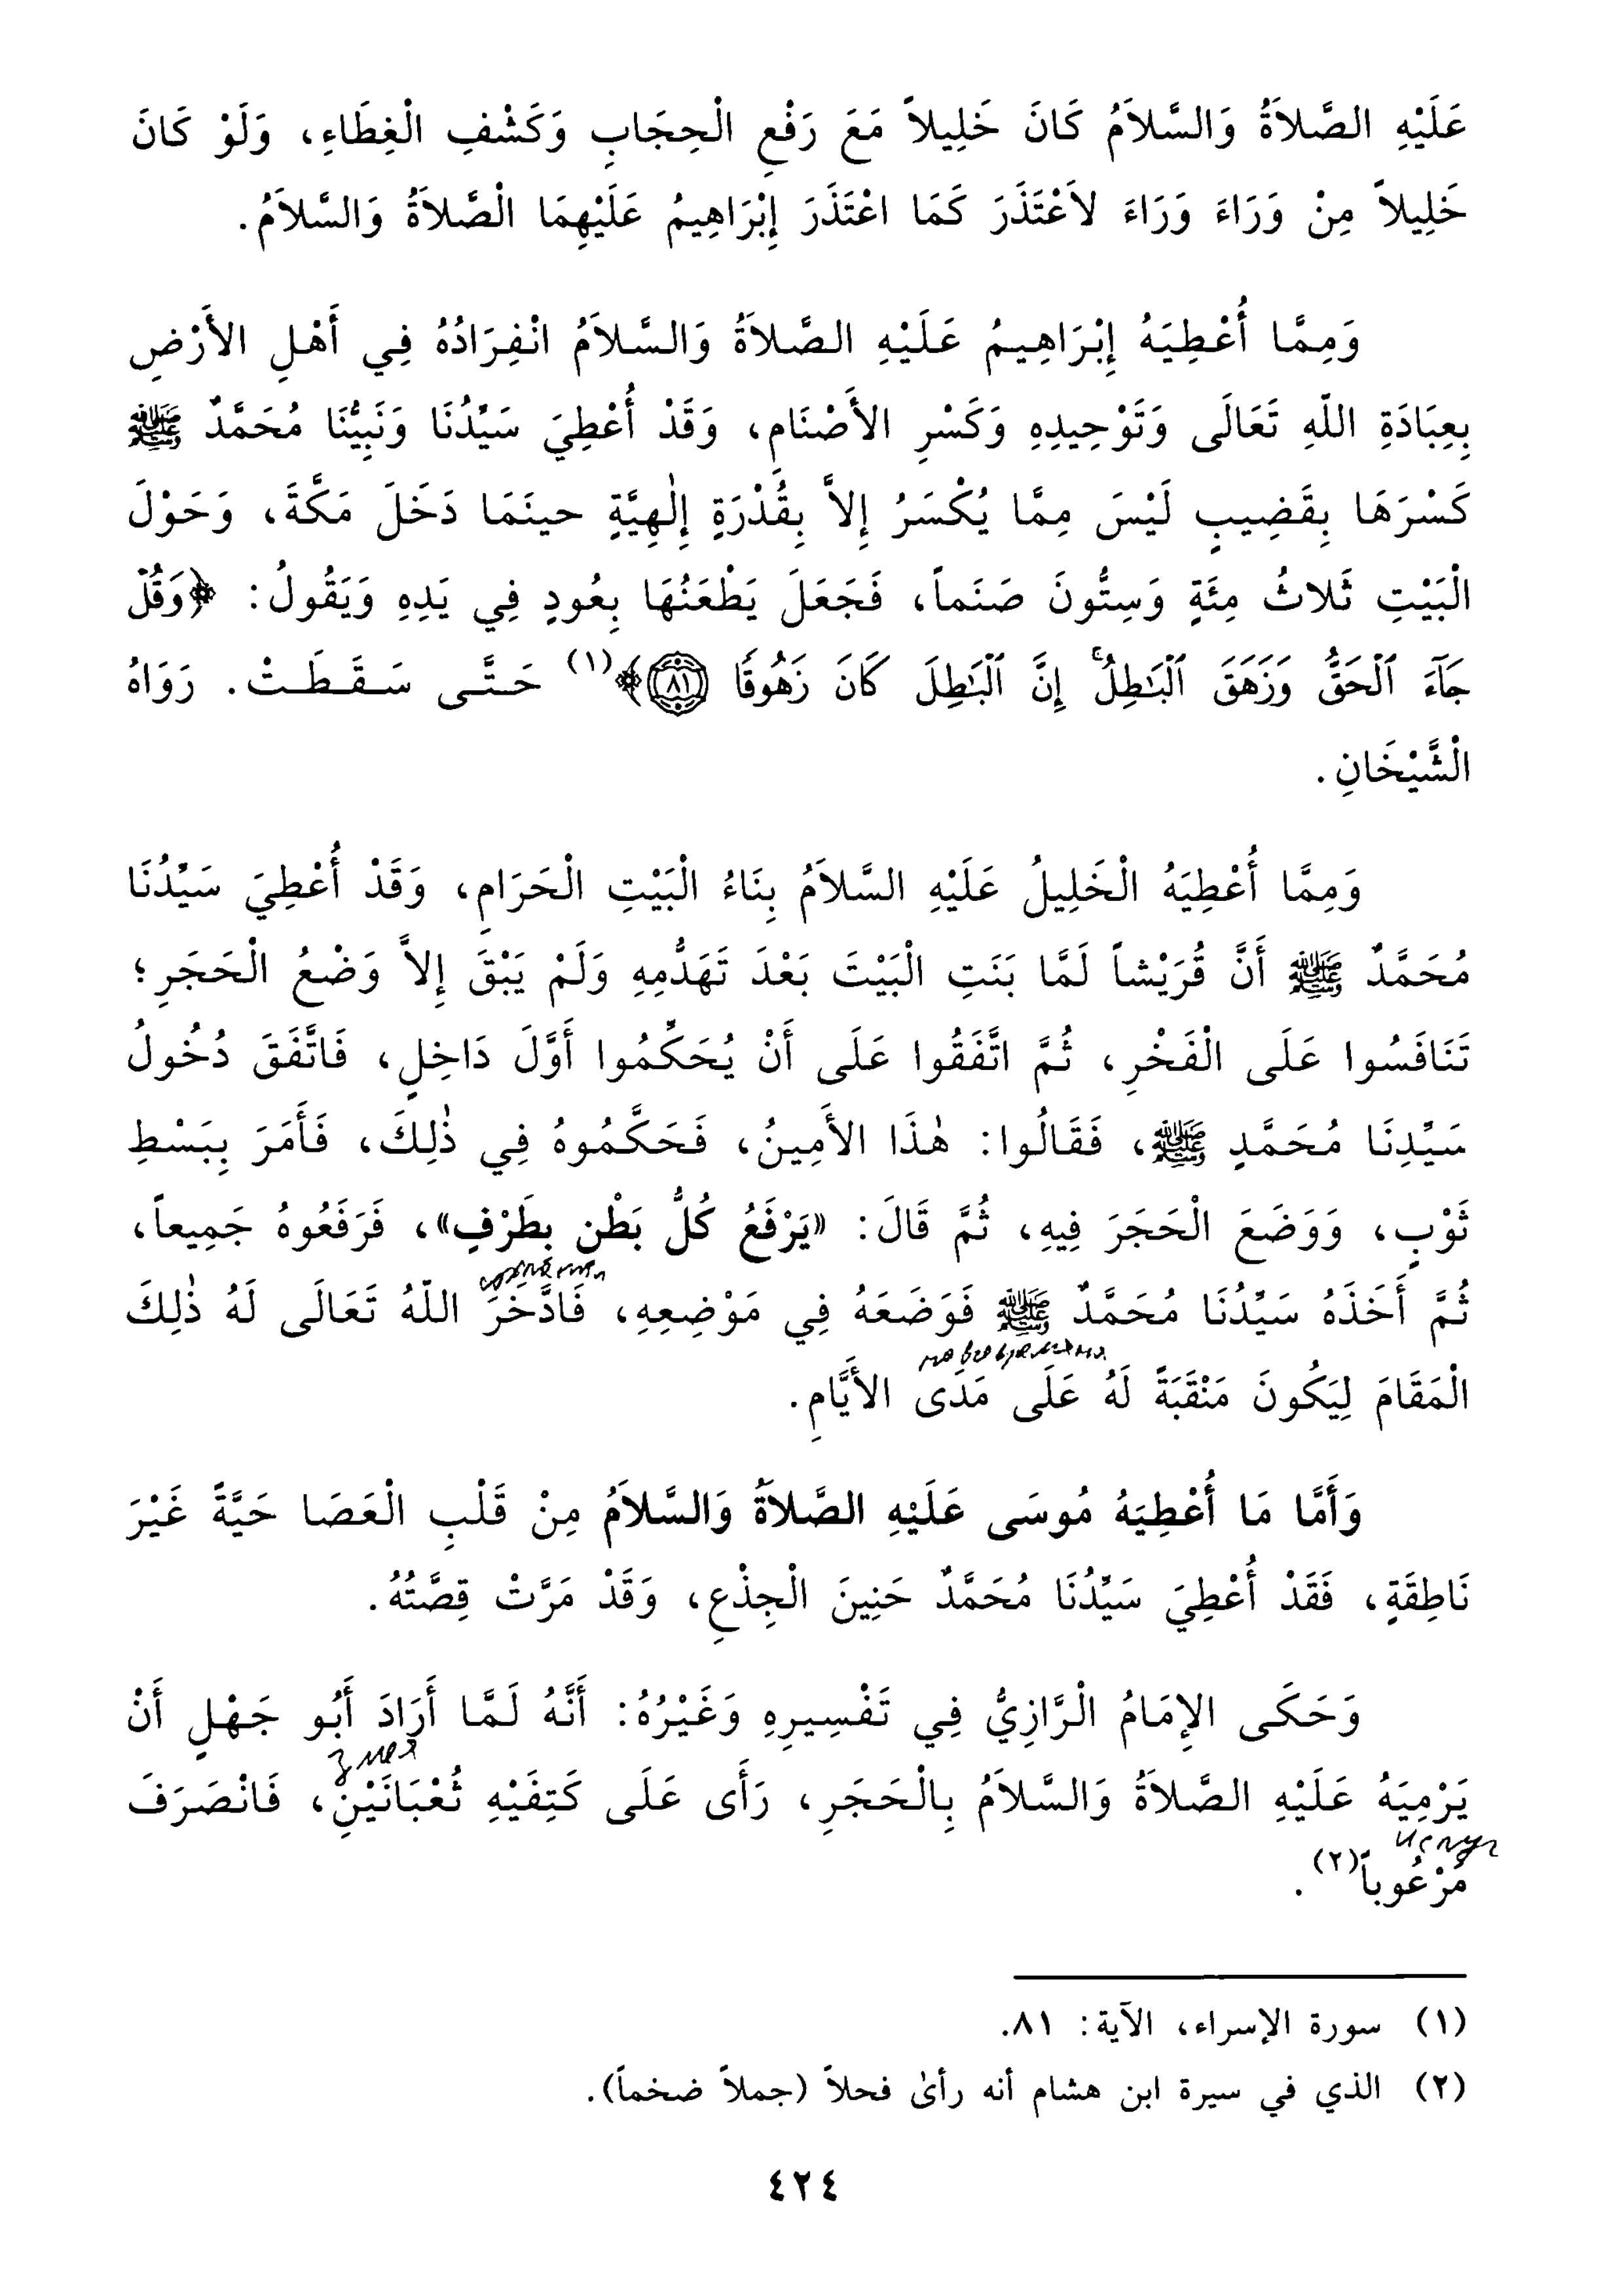 عَلَيْهِ الصَّلاَةُ وَالسَّلاَمُ كَانَ خَلِيلاً مَعَ رَفْعِ الْحِجَابِ وَكَشْفِ الْغِطَاءِ، وَلَوْ كَانَ
خَلِيلاً مِنْ وَرَاءَ وَرَاءَ لاَعْتَذَرَ كَمَا اعْتَذَرَ إِبْرَاهِيمُ عَلَيْهِمَا الْصَّلاَةُ وَالسَّلاَمُ.
وَمِمَّا أُعْطِيَهُ إِبْرَاهِيمُ عَلَيْهِ الصَّلاَةُ وَالسَّلاَمُ انْفِرَادُهُ فِي أَهْلِ الأَرْضِ
بِعِبَادَةِ اللّهِ تَعَالَى وَتَوْحِيدِهِ وَكَسْرِ الأَصْنَامِ، وَقَدْ أُعْطِيَ سَيِّدُنَا وَنَبِيُّنَا مُحَمَّدٌ ﷺ
كَسْرَهَا بِقَضِيبٍ لَيْسَ مِمَّا يُكْسَرُ إِلاَّ بِقُدْرَةٍ إِلٰهِيَّةٍ حينَمَا دَخَلَ مَكَّةَ، وَحَوْلَ
الْبَيْتِ ثَلاثُ مِئَةٍ وَسِتُّونَ صَنَماً، فَجَعَلَ يَطْعَنُهَا بِعُودٍ فِي يَدِهِ وَيَقُولُ: ﴿وَقُلْ
جَآءَ ٱلْحَقُّ وَزَهَقَ ٱلْبَـٰطِلُ ۚ إِنَّ ٱلْبَـٰطِلَ كَانَ زَهُوقًا ٨١﴾(١) حَتَّى سَقَطَتْ. رَوَاهُ
الْشَّيْخَانِ.
وَمِمَّا أُعْطِيَهُ الْخَلِيلُ عَلَيْهِ السَّلاَمُ بِنَاءُ الْبَيْتِ الْحَرَامِ، وَقَدْ أُعْطِيَ سَيِّدُنَا
مُحَمَّدٌ ﷺ أَنَّ قُرَيْشاً لَمَّا بَنَتِ الْبَيْتَ بَعْدَ تَهَدُّمِهِ وَلَمْ يَبْقَ إِلاَّ وَضْعُ الْحَجَرِ؛
تَنَافَسُوا عَلَى الْفَخْرِ، ثُمَّ اتَّفَقُوا عَلَى أَنْ يُحَكِّمُوا أَوَّلَ دَاخِلٍ، فَاتَّفَقَ دُخُولُ
سَيِّدِنَا مُحَمَّدٍ ﷺ، فَقَالُوا: هٰذَا الأَمِينُ، فَحَكَّمُوهُ فِي ذٰلِكَ، فَأَمَرَ بِبَسْطِ
ثَوْبٍ، وَوَضَعَ الْحَجَرَ فِيهِ، ثُمَّ قَالَ: «يَرْفَعُ كُلُّ بَطْنٍ بِطَرْفٍ»، فَرَفَعُوهُ جَمِيعاً،
ثُمَّ أَخَذَهُ سَيِّدُنَا مُحَمَّدٌ ﷺ فَوَضَعَهُ فِي مَوْضِعِهِ، فَادَّخَرَ اللّهُ تَعَالَى لَهُ ذٰلِكَ
الْمَقَامَ لِيَكُونَ مَنْقَبَةً لَهُ عَلَى مَدَى الأَيَّامِ.
وَأَمَّا مَا أُعْطِيَهُ مُوسَى عَلَيْهِ الصَّلاَةُ وَالسَّلاَمُ مِنْ قَلْبِ الْعَصَا حَيَّةً غَيْرَ
نَاطِقَةٍ، فَقَدْ أُعْطِيَ سَيِّدُنَا مُحَمَّدٌ حَنِينَ الْجِذْعِ، وَقَدْ مَرَّتْ قِصَّتُهُ.
وَحَكَى الإِمَامُ الْرَّازِيُّ فِي تَفْسِيرِهِ وَغَيْرُهُ: أَنَّهُ لَمَّا أَرَادَ أَبُو جَهْلٍ أَنْ
يَرْمِيَهُ عَلَيْهِ الصَّلاَةُ وَالسَّلاَمُ بِالْحَجَرِ، رَأَى عَلَى كَتِفَيْهِ ثُعْبَانَيْنِ، فَانْصَرَفَ
مَرْعُوباً(٢).
(١) سورة الإسراء، الآية: ٨١.
(٢) الذي في سيرة ابن هشام أنه رأىٰ فحلاً (جملاً ضخماً).
٤٢٤